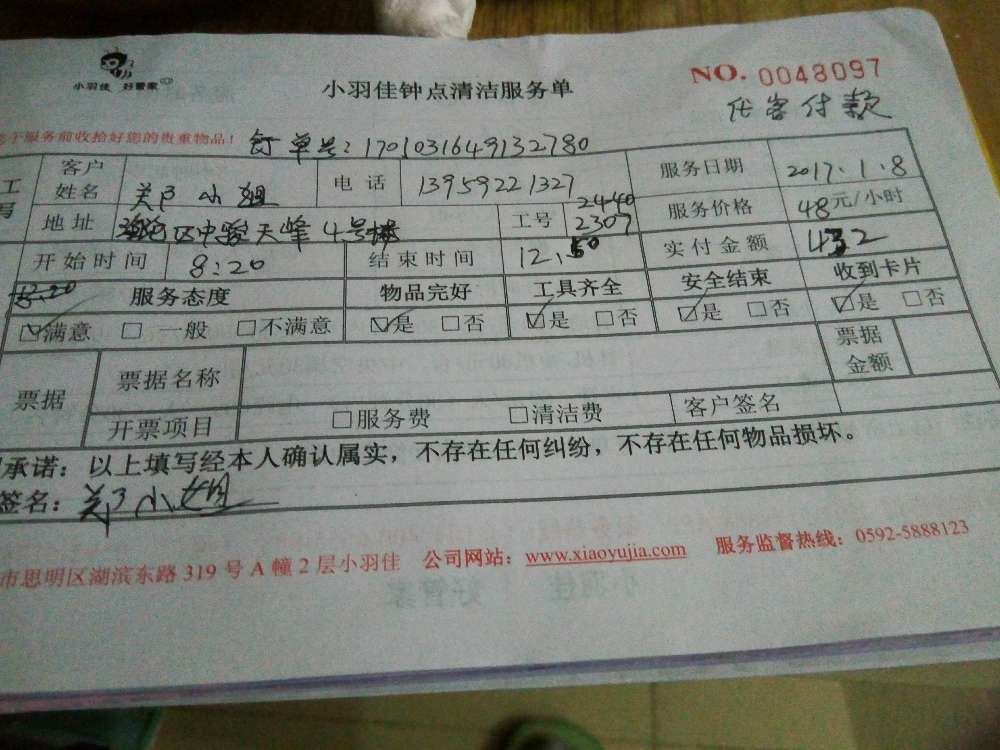 小羽佳 好管家
小羽佳钟点清洁服务单
NO. 0048097
代客付款
于服务前收拾好您的贵重物品！
订单号：1701031649132780
客户姓名 郑小姐 电话 13959221327 服务日期 2017.1.8
地址 区中骏天峰4号楼 工号 2440 2307 服务价格 48元/小时
开始时间 8:20 结束时间 12.50 实付金额 432
12.20
服务态度 物品完好 工具齐全 安全结束 收到卡片
☑满意 □一般 □不满意 ☑是 □否 ☑是 □否 ☑是 □否 ☑是 □否
票据 票据名称 票据金额
开票项目 □服务费 □清洁费 客户签名
承诺：以上填写经本人确认属实，不存在任何纠纷，不存在任何物品损坏。
签名：郑小姐
市思明区湖滨东路 319 号 A 幢 2 层小羽佳 公司网站：www.xiaoyujia.com 服务监督热线：0592-5888123
小羽佳 好管家